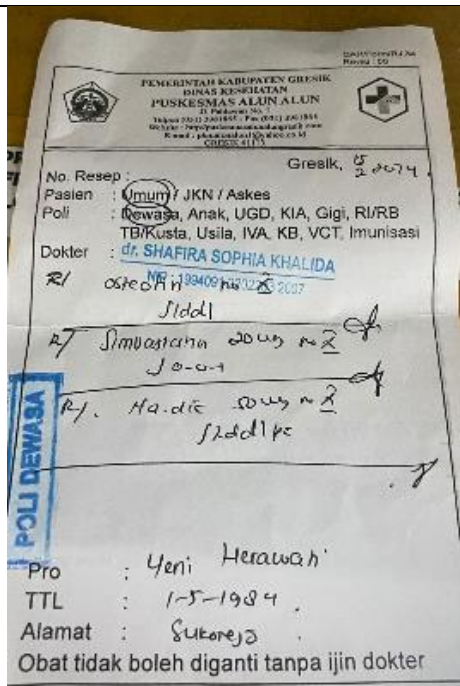 PEMERINTAH KABUPATEN GRESIK
DINAS KESEHATAN
PUSKESMAS ALUN ALUN
GRESIK 61115
Gresik,
No. Resep :
Pasien : Umum / JKN / Askes
Poli : Dewasa, Anak, UGD, KIA, Gigi, RI/RB
TB/Kusta, Usila, IVA, KB, VCT, Imunisasi
Dokter : dr. SHAFIRA SOPHIA KHALIDA
R/ no X
S1dd1
R/ Simvastatin 20 mg no X
S 0-0-1
R/. Na.dic 50 mg no X
S2dd1 pc
POLI DEWASA
Pro : Yeni Herawati
TTL : 1-5-1984
Alamat : Sukorejo
Obat tidak boleh diganti tanpa ijin dokter